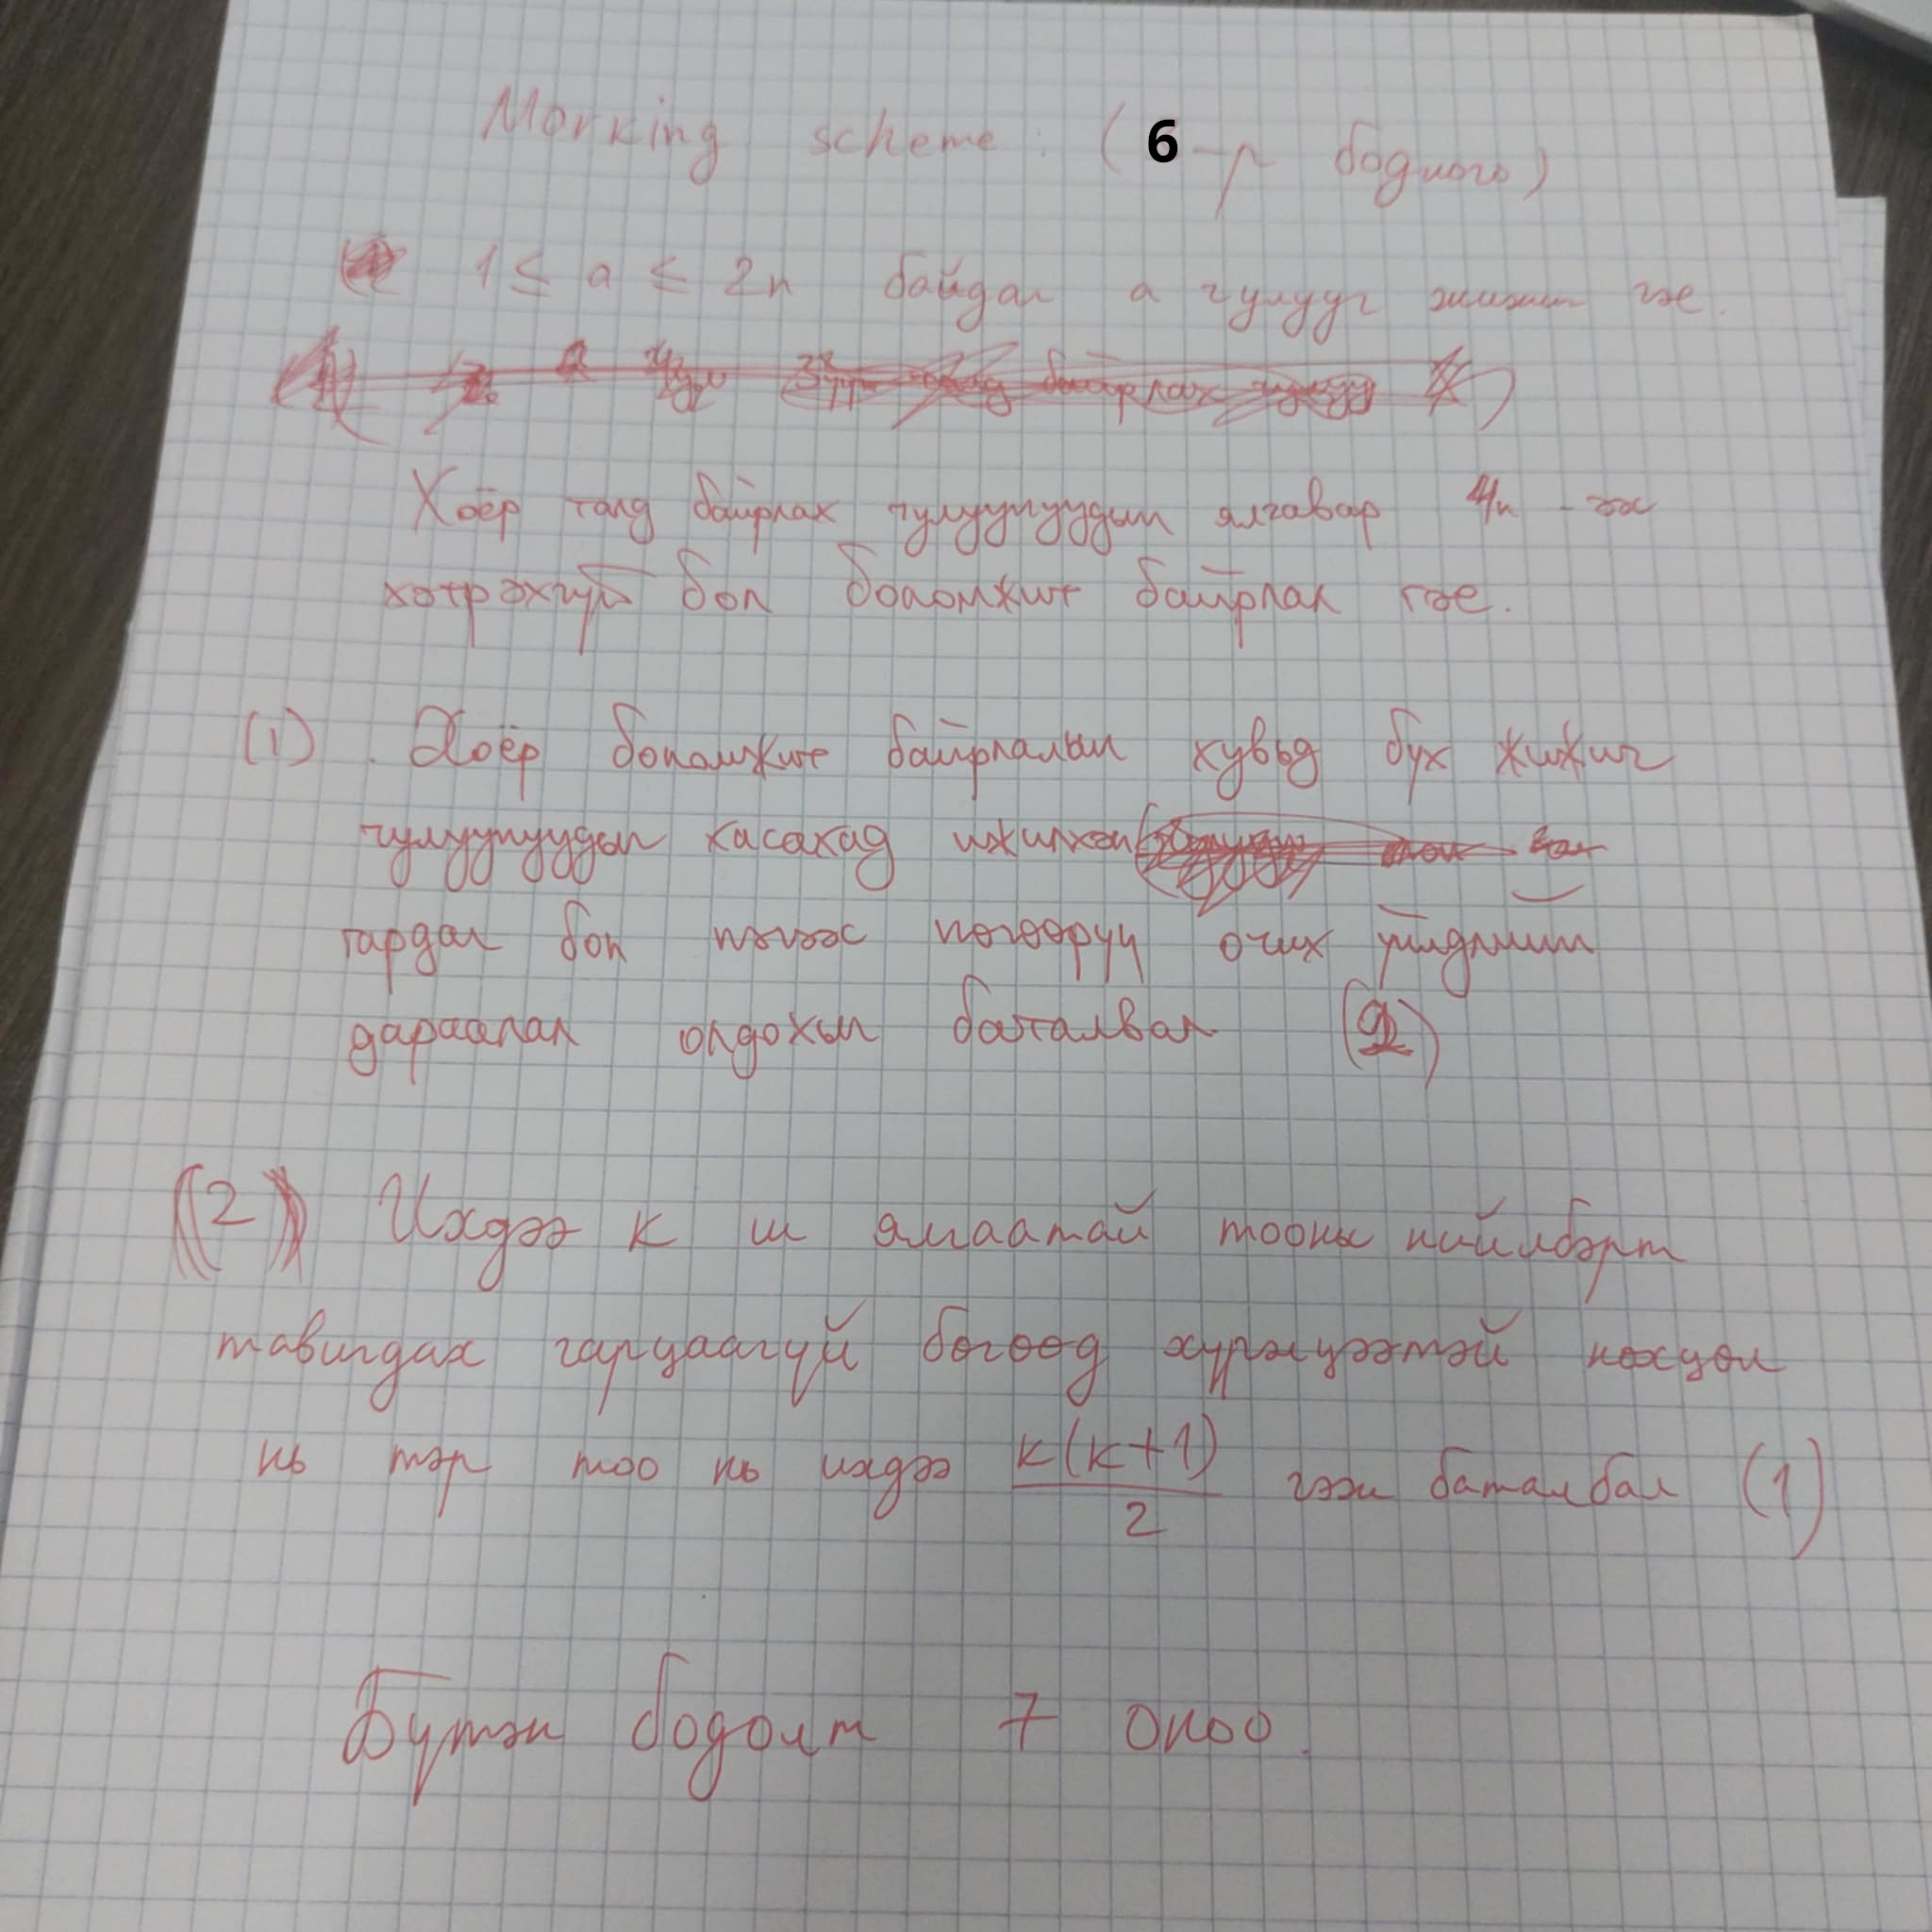 Marking scheme : (6-р бодлого)
1 ≤ a ≤ 2n байдал a чулууг жижиг гэе.
Хоёр талд байрлах чулуунуудын ялгавар 4n - ээс
хэтрэхгүй бол боломжит байрлал гэе.
(1). Хоёр боломжит байрлалын хувьд бүх жижиг
чулуунуудыг хасахад ижилхэн
гардаг бол нэгээс нөгөөрүү очих үйлдлийн
дараалал олдохыг баталвал (2)
(2) Ихдээ k ш ялгаатай тооны нийлбэрт
тавигдах гарцаагүй бөгөөд хүрэлцээтэй нөхцөл
нь тэр тоо нь ихдээ k(k+1)/2 гэж батлабал (1)
Бүтэн бодолт 7 оноо.